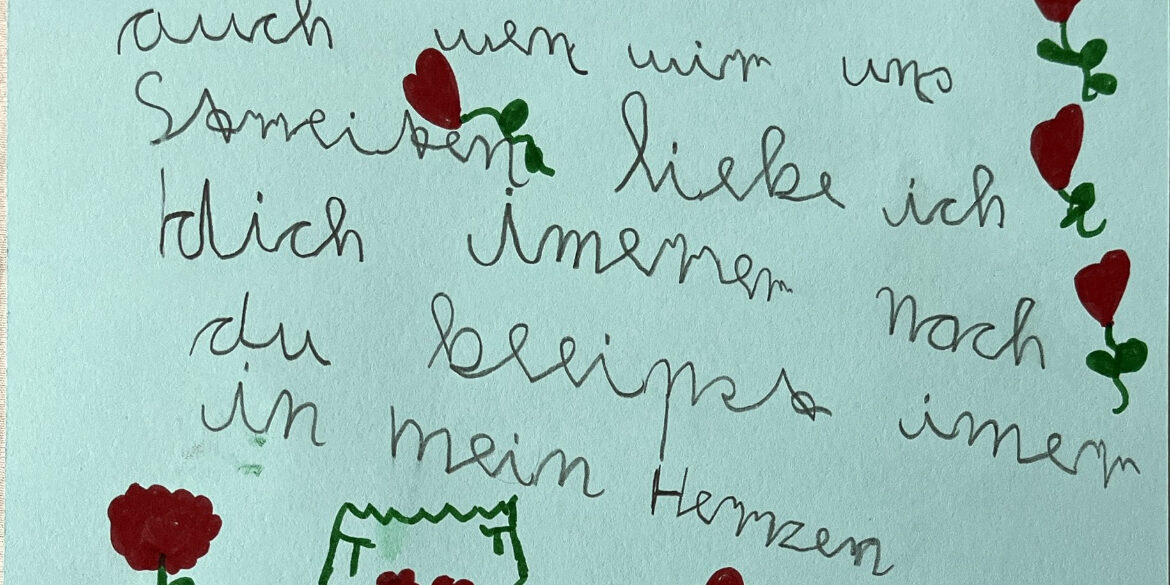 auch wen wir uns
Streiten liebe ich
dich imerer noch
du bleipst imer
in mein Herzen
T T